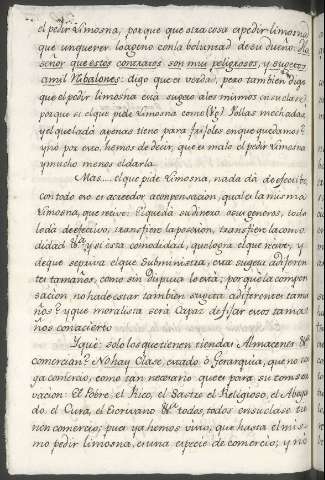 el pedir Limosna, porque que otra cosa es pedir limosna
que unquerer lo ageno con la boluntad de su dueño.
señor que estos contratos son muy peligrosos, y sugetos
a mil Vibalones: digo que es verdad, pero tambien digo
que el pedir limosna está sugeto a los mismos en su clase,
porque si el que pide Limosna come Pollas mechadas
y el que la dá apenas tiene para frijoles en que quedamos?
y nó por esso, hemos de decir, que es malo el pedir Limosna
y mucho menos el darla.
Mas.... el que pide Limosna, nada dá de efectibo,
con todo esso es acreedor a compensacion, qual es la misma
Limosna, que recive. El que dá su dinero, o sus generos, todo
lo da de efectivo, transfiere la posecion, transfiere la como
didad &a. y si esta comodidad, que logra el que recive, y
de que se priva el que Subministra, esta sugeta a diferen
tes tamaños, como sin disputa lo está; por qué la compen
sacion no ha de estar tambien sugeta a diferentes tama
ños? y que moralista será Capaz de fijar esos tama
ños con acierto
Y qué: solo los que tienen tiendas, Almacenes &a.
comercian? No hay Clase, estado, ó Gerarquia, que no
ga comercio, como tan necesario que es para su conser
vacion: El Pobre, el Rico, el Sastre el Religioso, el Aboga
do, el Cura, el Escrivano &a. todos, todos en su clase tie
nen comercio; pues ya hemos visto, que hasta el mis
mo pedir limosna, es una especie de comercio; y nó